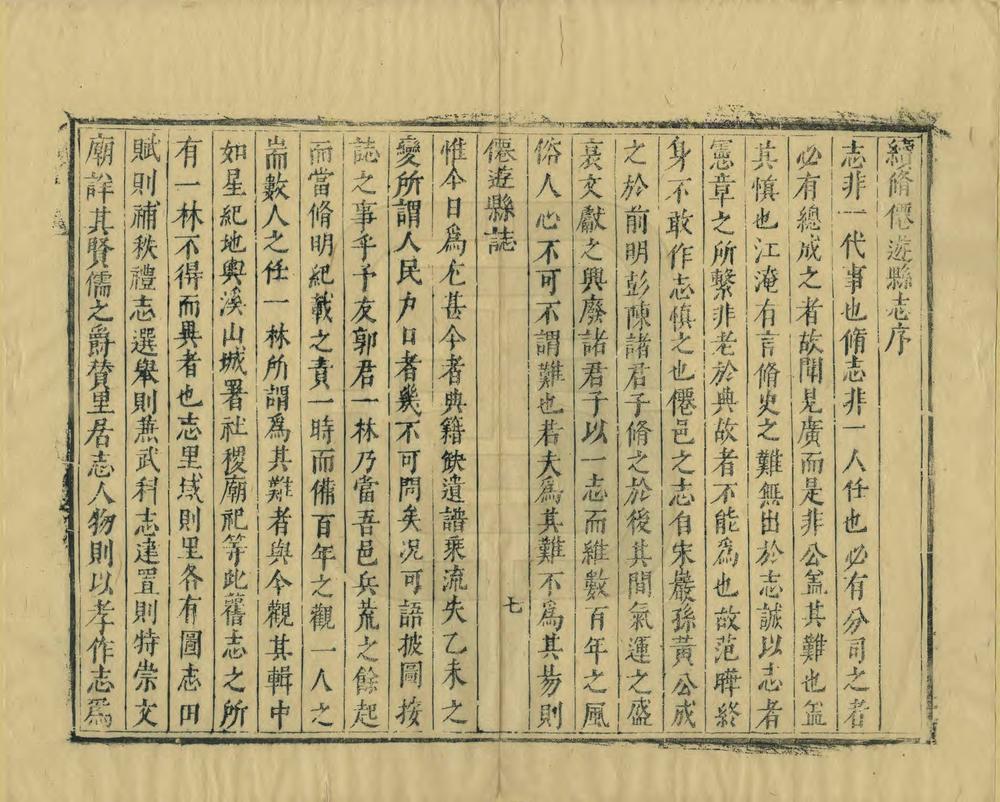 續脩僊遊縣志序
志非一代事也脩志非一人任也必有分司之者
必有總成之者故聞見廣而是非公盖其難也盖
其慎也江淹有言脩史之難無出於志誠以志者
憲章之所繫非老於典故者不能為也故范曄終
身不敢作志慎之也僊邑之志自宋巖孫黃公成
之於前明彭陳諸君子脩之於後其間氣運之盛
衰文獻之興廢諸君子以一志而維數百年之風
俗人心不可不謂難也若夫為其難不為其易則
僊遊縣誌
七
惟今日為尤甚今者典籍缺遺譜乗流失乙未之
變所謂人民户口者幾不可問矣况可語披圖按
誌之事乎予友郭君一林乃當吾邑兵荒之餘起
而當脩明紀載之責一時而備百年之觀一人之
耑數人之任一林所謂為其難者與今觀其輯中
如星紀地輿溪山城署社稷廟祀等此舊志之所
有一林不得而異者也志里域則里各有圖志田
賦則補秩禮志選舉則兼武科志建置則特崇文
廟詳其賢儒之爵贊里居志人物則以孝作志為